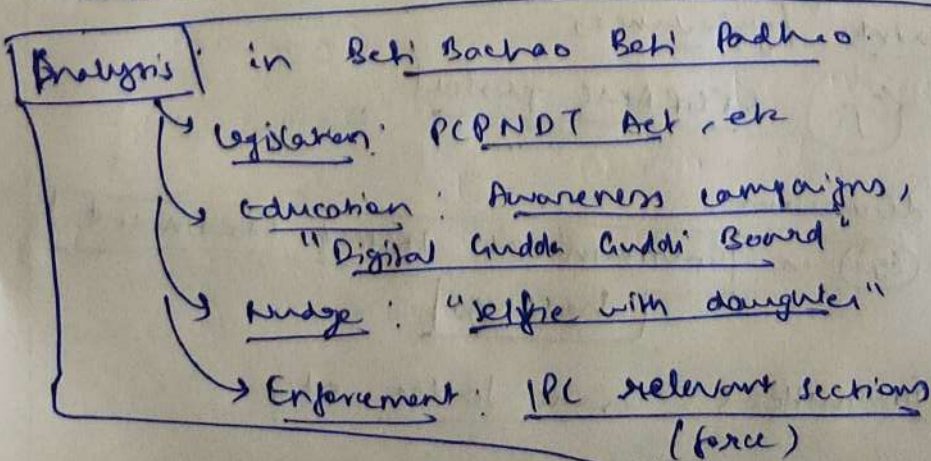 Analysis in Beti Bachao Beti Padhao
Legislation: PCPNDT Act, etc
Education: Awareness campaigns,
"Digital Gudda Guddi Board"
Nudge: "selfie with daughter"
Enforcement: IPC relevant sections
(force)